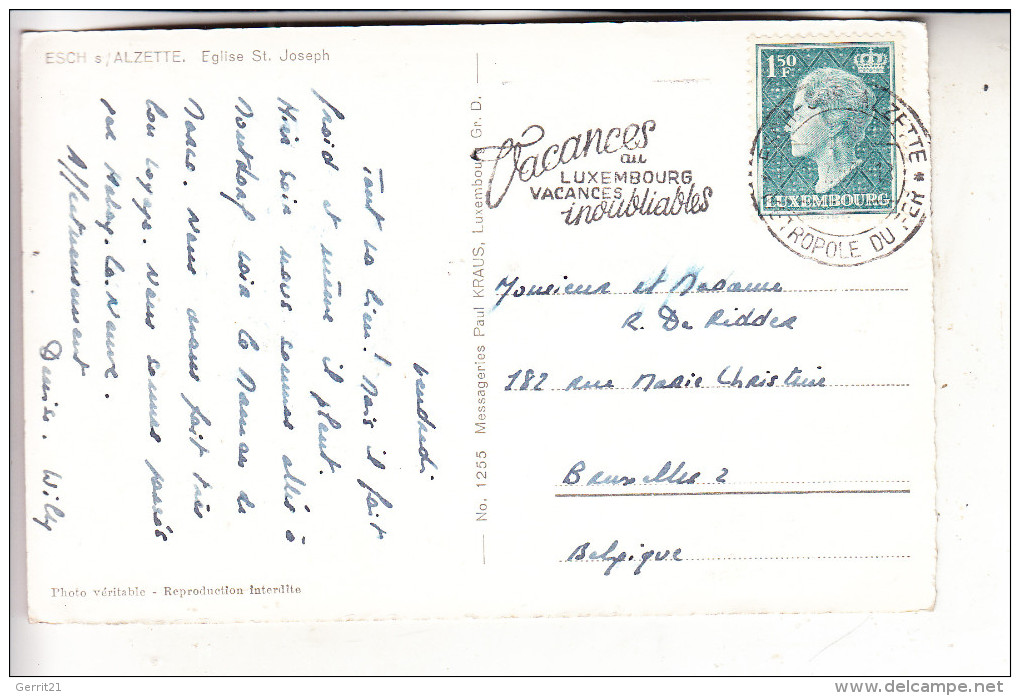 ESCH s/ALZETTE. Eglise St. Joseph
vendredi.
Tout va bien! Mais il fait
froid et même il pleut.
Hier soir nous sommes allés à
Mondorf voir le Maman de
Marc. Nous avons fait très
bon voyage. Nous sommes passés
par Habay-la-Neuve.
Affectueusement
Denise. Willy
Photo véritable - Reproduction interdite
No. 1255 Messageries Paul KRAUS, Luxembourg Gr. D.
Vacances
au
LUXEMBOURG
VACANCES
inoubliables
1F50
LUXEMBOURG
ALZETTE
METROPOLE DU
Monsieur et Madame
R. De Ridder
182 rue Marie Christine
Bruxelles 2
Belgique
Gerrit21
delcampe.net